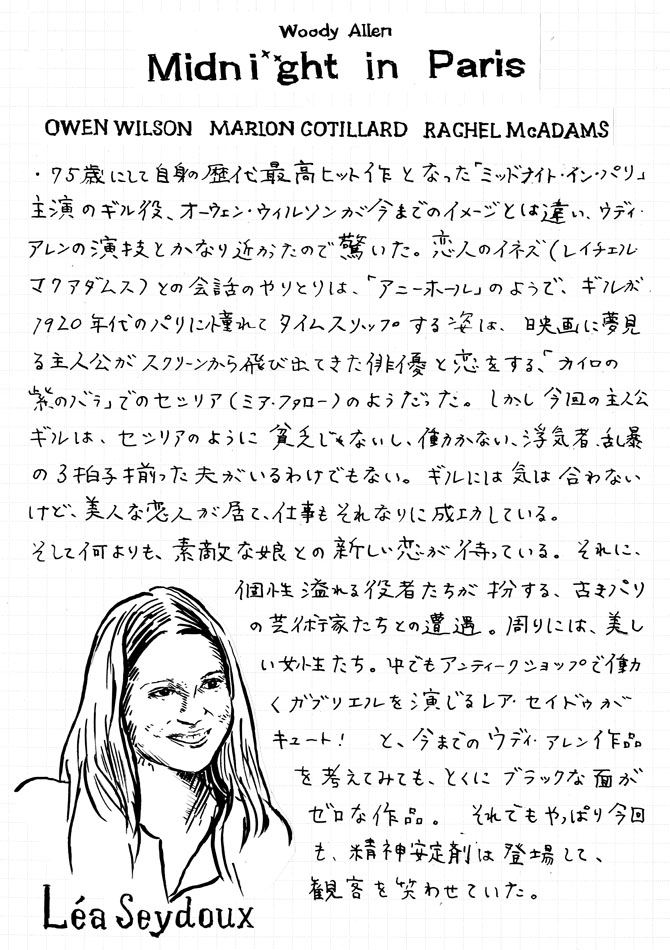 Woody Allen
Midnight in Paris
OWEN WILSON MARION COTILLARD RACHEL McADAMS
・75歳にして自身の歴代最高ヒット作となった「ミッドナイト・イン・パリ」
主演のギル役、オーウェン・ウィルソンが今までのイメージとは違い、ウディ・
アレンの演技とかなり近かったので驚いた。恋人のイネズ(レイチェル
マクアダムス)との会話のやりとりは、「アニーホール」のようで、ギルが
1920年代のパリに憧れてタイムスリップする姿は、映画に夢見
る主人公がスクリーンから飛び出てきた俳優と恋をする、「カイロの
紫のバラ」でのセシリア(ミア・ファロー)のようだった。しかし今回の主人公
ギルは、セシリアのように貧乏じゃないし、働かない、浮気者、乱暴
の3拍子揃った夫がいるわけでもない。ギルには気は合わない
けど、美人な恋人が居て、仕事もそれなりに成功している。
そして何よりも、素敵な娘との新しい恋が待っている。それに、
個性溢れる役者たちが扮する、古きパリ
の芸術家たちとの遭遇。周りには、美し
い女性たち。中でもアンティークショップで働
くガブリエルを演じるレア・セイドゥが
キュート! と、今までのウディ・アレン作品
を考えてみても、とくにブラックな面が
ゼロな作品。 それでもやっぱり今回
も、精神安定剤は登場して、
観客を笑わせていた。
Léa Seydoux